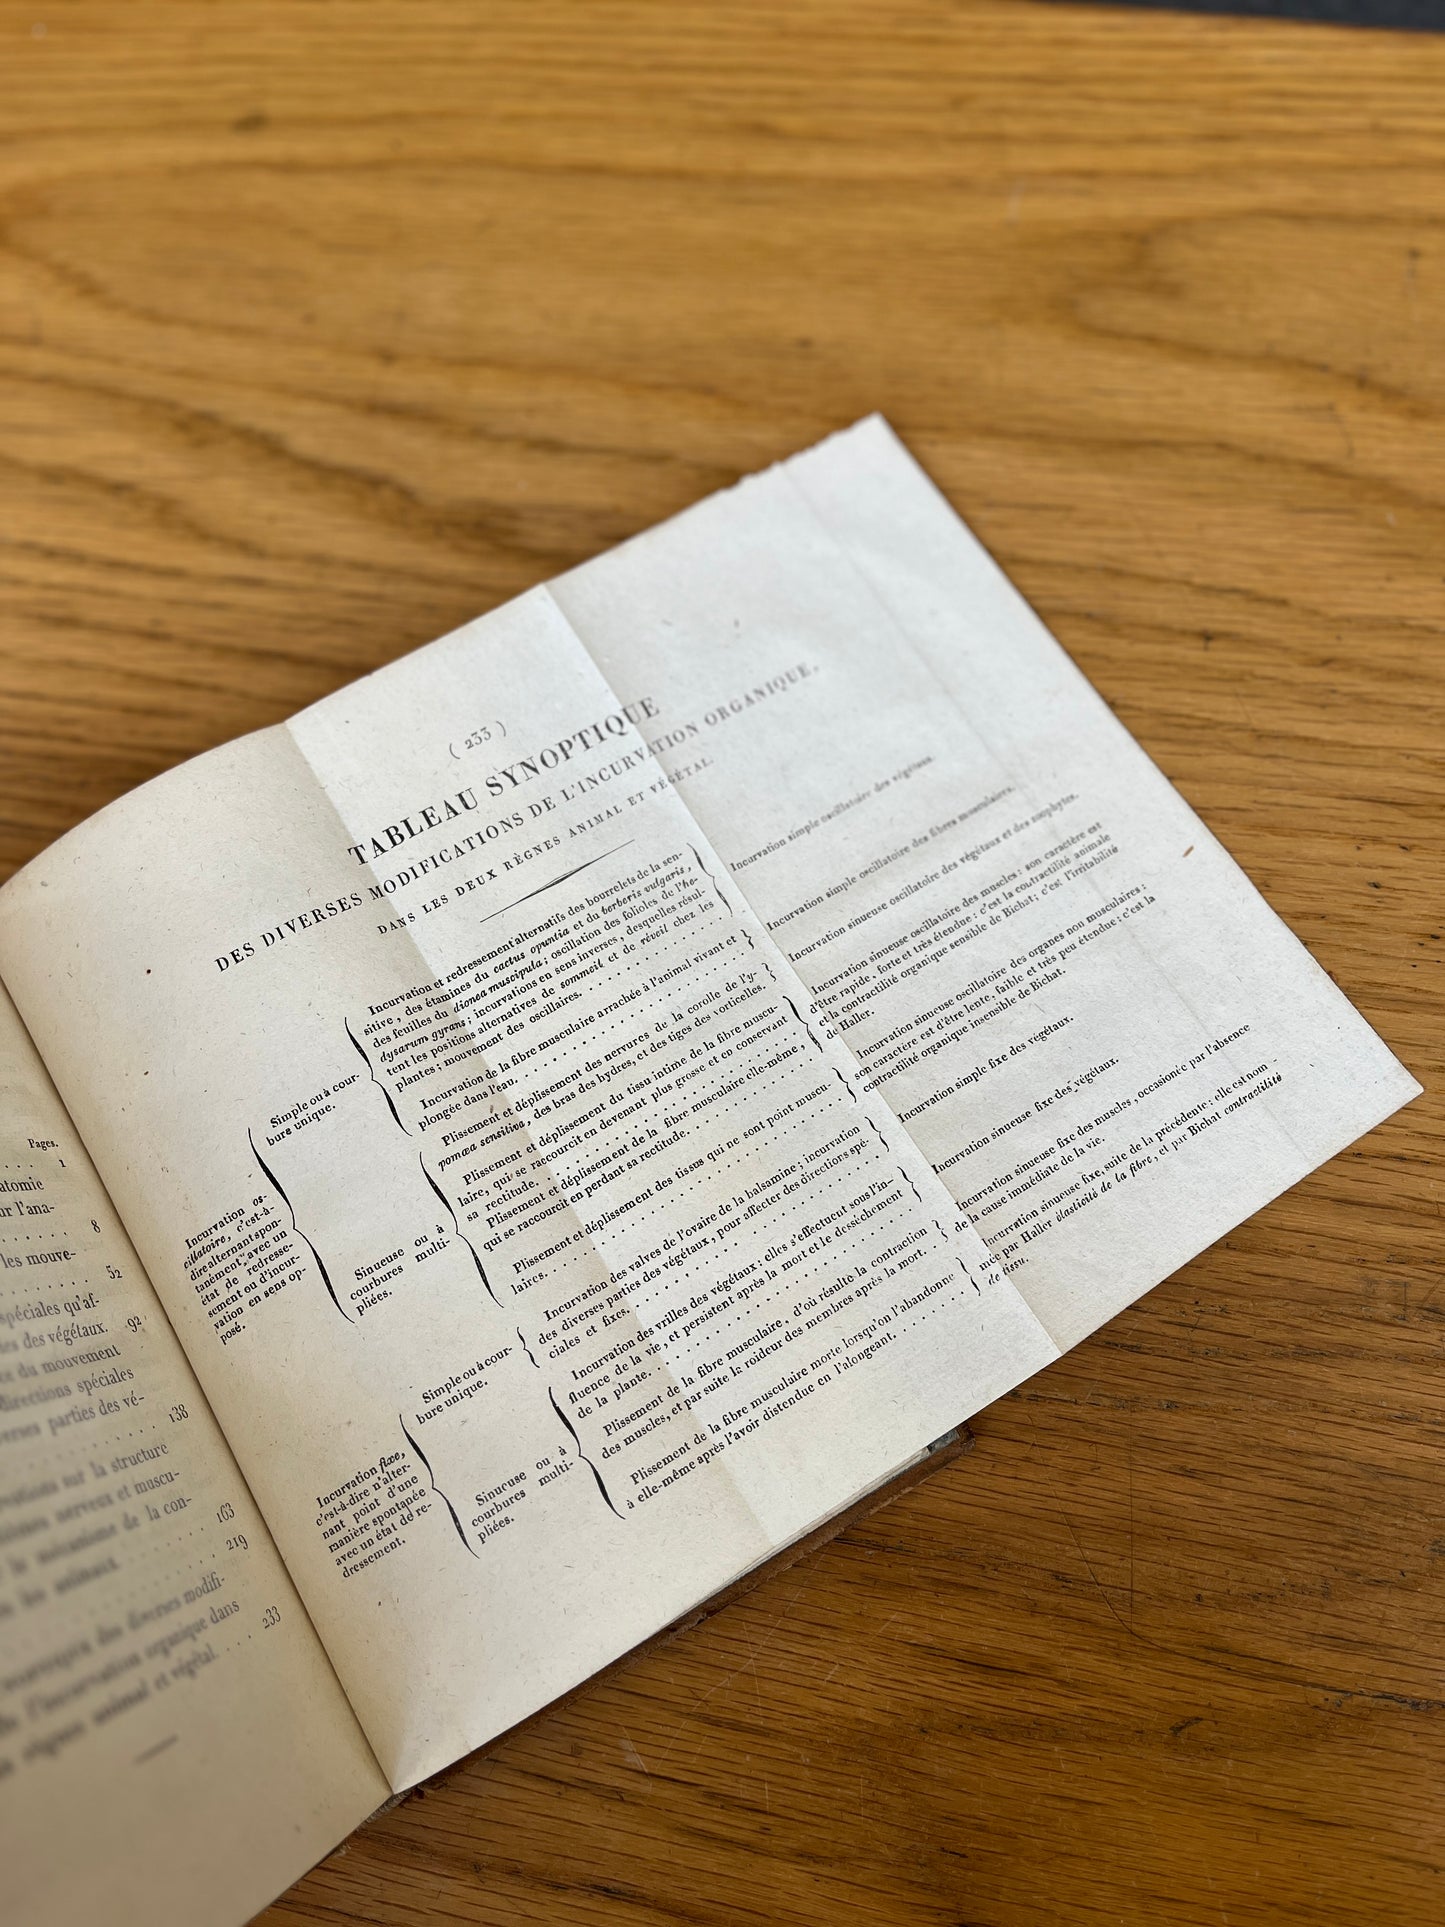 Pages.
1
atomie
ur l'ana-
8
les mouve-
52
spéciales qu'af-
ties des végétaux. 92
ce du mouvement
directions spéciales
verses parties des vé-
138
sur la structure
nerveux et muscu-
le mécanisme de la con-
les animaux.
163
219
des diverses modifi-
l'incurvation organique dans
règnes animal et végétal. 233
( 233 )
TABLEAU SYNOPTIQUE
DES DIVERSES MODIFICATIONS DE L'INCURVATION ORGANIQUE,
DANS LES DEUX RÈGNES ANIMAL ET VÉGÉTAL.
Incurvation os-
cillatoire, c'est-à-
dire alternant spon-
tanément avec un
état de redresse-
sement ou d'incur-
vation en sens op-
posé.
Simple ou à cour-
bure unique.
Incurvation et redressement alternatifs des bourrelets de la sen-
sitive, des étamines du cactus opuntia et du berberis vulgaris,
des feuilles du dionea muscipula; oscillation des folioles de l'he-
dysarum gyrans; incurvations en sens inverses, desquelles résul-
tent les positions alternatives de sommeil et de réveil chez les
plantes; mouvement des oscillaires.
Incurvation simple oscillatoire des végétaux.
Incurvation de la fibre musculaire arrachée à l'animal vivant et
plongée dans l'eau.
Incurvation simple oscillatoire des fibres musculaires.
Sinueuse ou à
courbures multi-
pliées.
Plissement et déplissement des nervures de la corolle de l'y-
pomœa sensitiva, des bras des hydres, et des tiges des vorticelles.
Incurvation sinueuse oscillatoire des végétaux et des zoophytes.
Plissement et déplissement du tissu intime de la fibre muscu-
laire, qui se raccourcit en devenant plus grosse et en conservant
sa rectitude.
Plissement et déplissement de la fibre musculaire elle-même,
qui se raccourcit en perdant sa rectitude.
Incurvation sinueuse oscillatoire des muscles: son caractère est
d'être rapide, forte et très étendue: c'est la contractilité animale
et la contractilité organique sensible de Bichat; c'est l'irritabilité
de Haller.
Plissement et déplissement des tissus qui ne sont point muscu-
laires.
Incurvation sinueuse oscillatoire des organes non musculaires:
son caractère est d'être lente, faible et très peu étendue: c'est la
contractilité organique insensible de Bichat.
Incurvation fixe,
c'est-à-dire n'alter-
nant point d'une
manière spontanée
avec un état de re-
dressement.
Simple ou à cour-
bure unique.
Incurvation des valves de l'ovaire de la balsamine; incurvation
des diverses parties des végétaux, pour affecter des directions spé-
ciales et fixes.
Incurvation simple fixe des végétaux.
Sinueuse ou à
courbures multi-
pliées.
Incurvation des vrilles des végétaux: elles s'effectuent sous l'in-
fluence de la vie, et persistent après la mort et le desséchement
de la plante.
Incurvation sinueuse fixe des végétaux.
Plissement de la fibre musculaire, d'où résulte la contraction
des muscles, et par suite la roideur des membres après la mort.
Incurvation sinueuse fixe des muscles, occasionée par l'absence
de la cause immédiate de la vie.
Plissement de la fibre musculaire morte lorsqu'on l'abandonne
à elle-même après l'avoir distendue en l'alongeant.
Incurvation sinueuse fixe, suite de la précédente: elle est nom-
mée par Haller élasticité de la fibre, et par Bichat contractilité
de tissu.